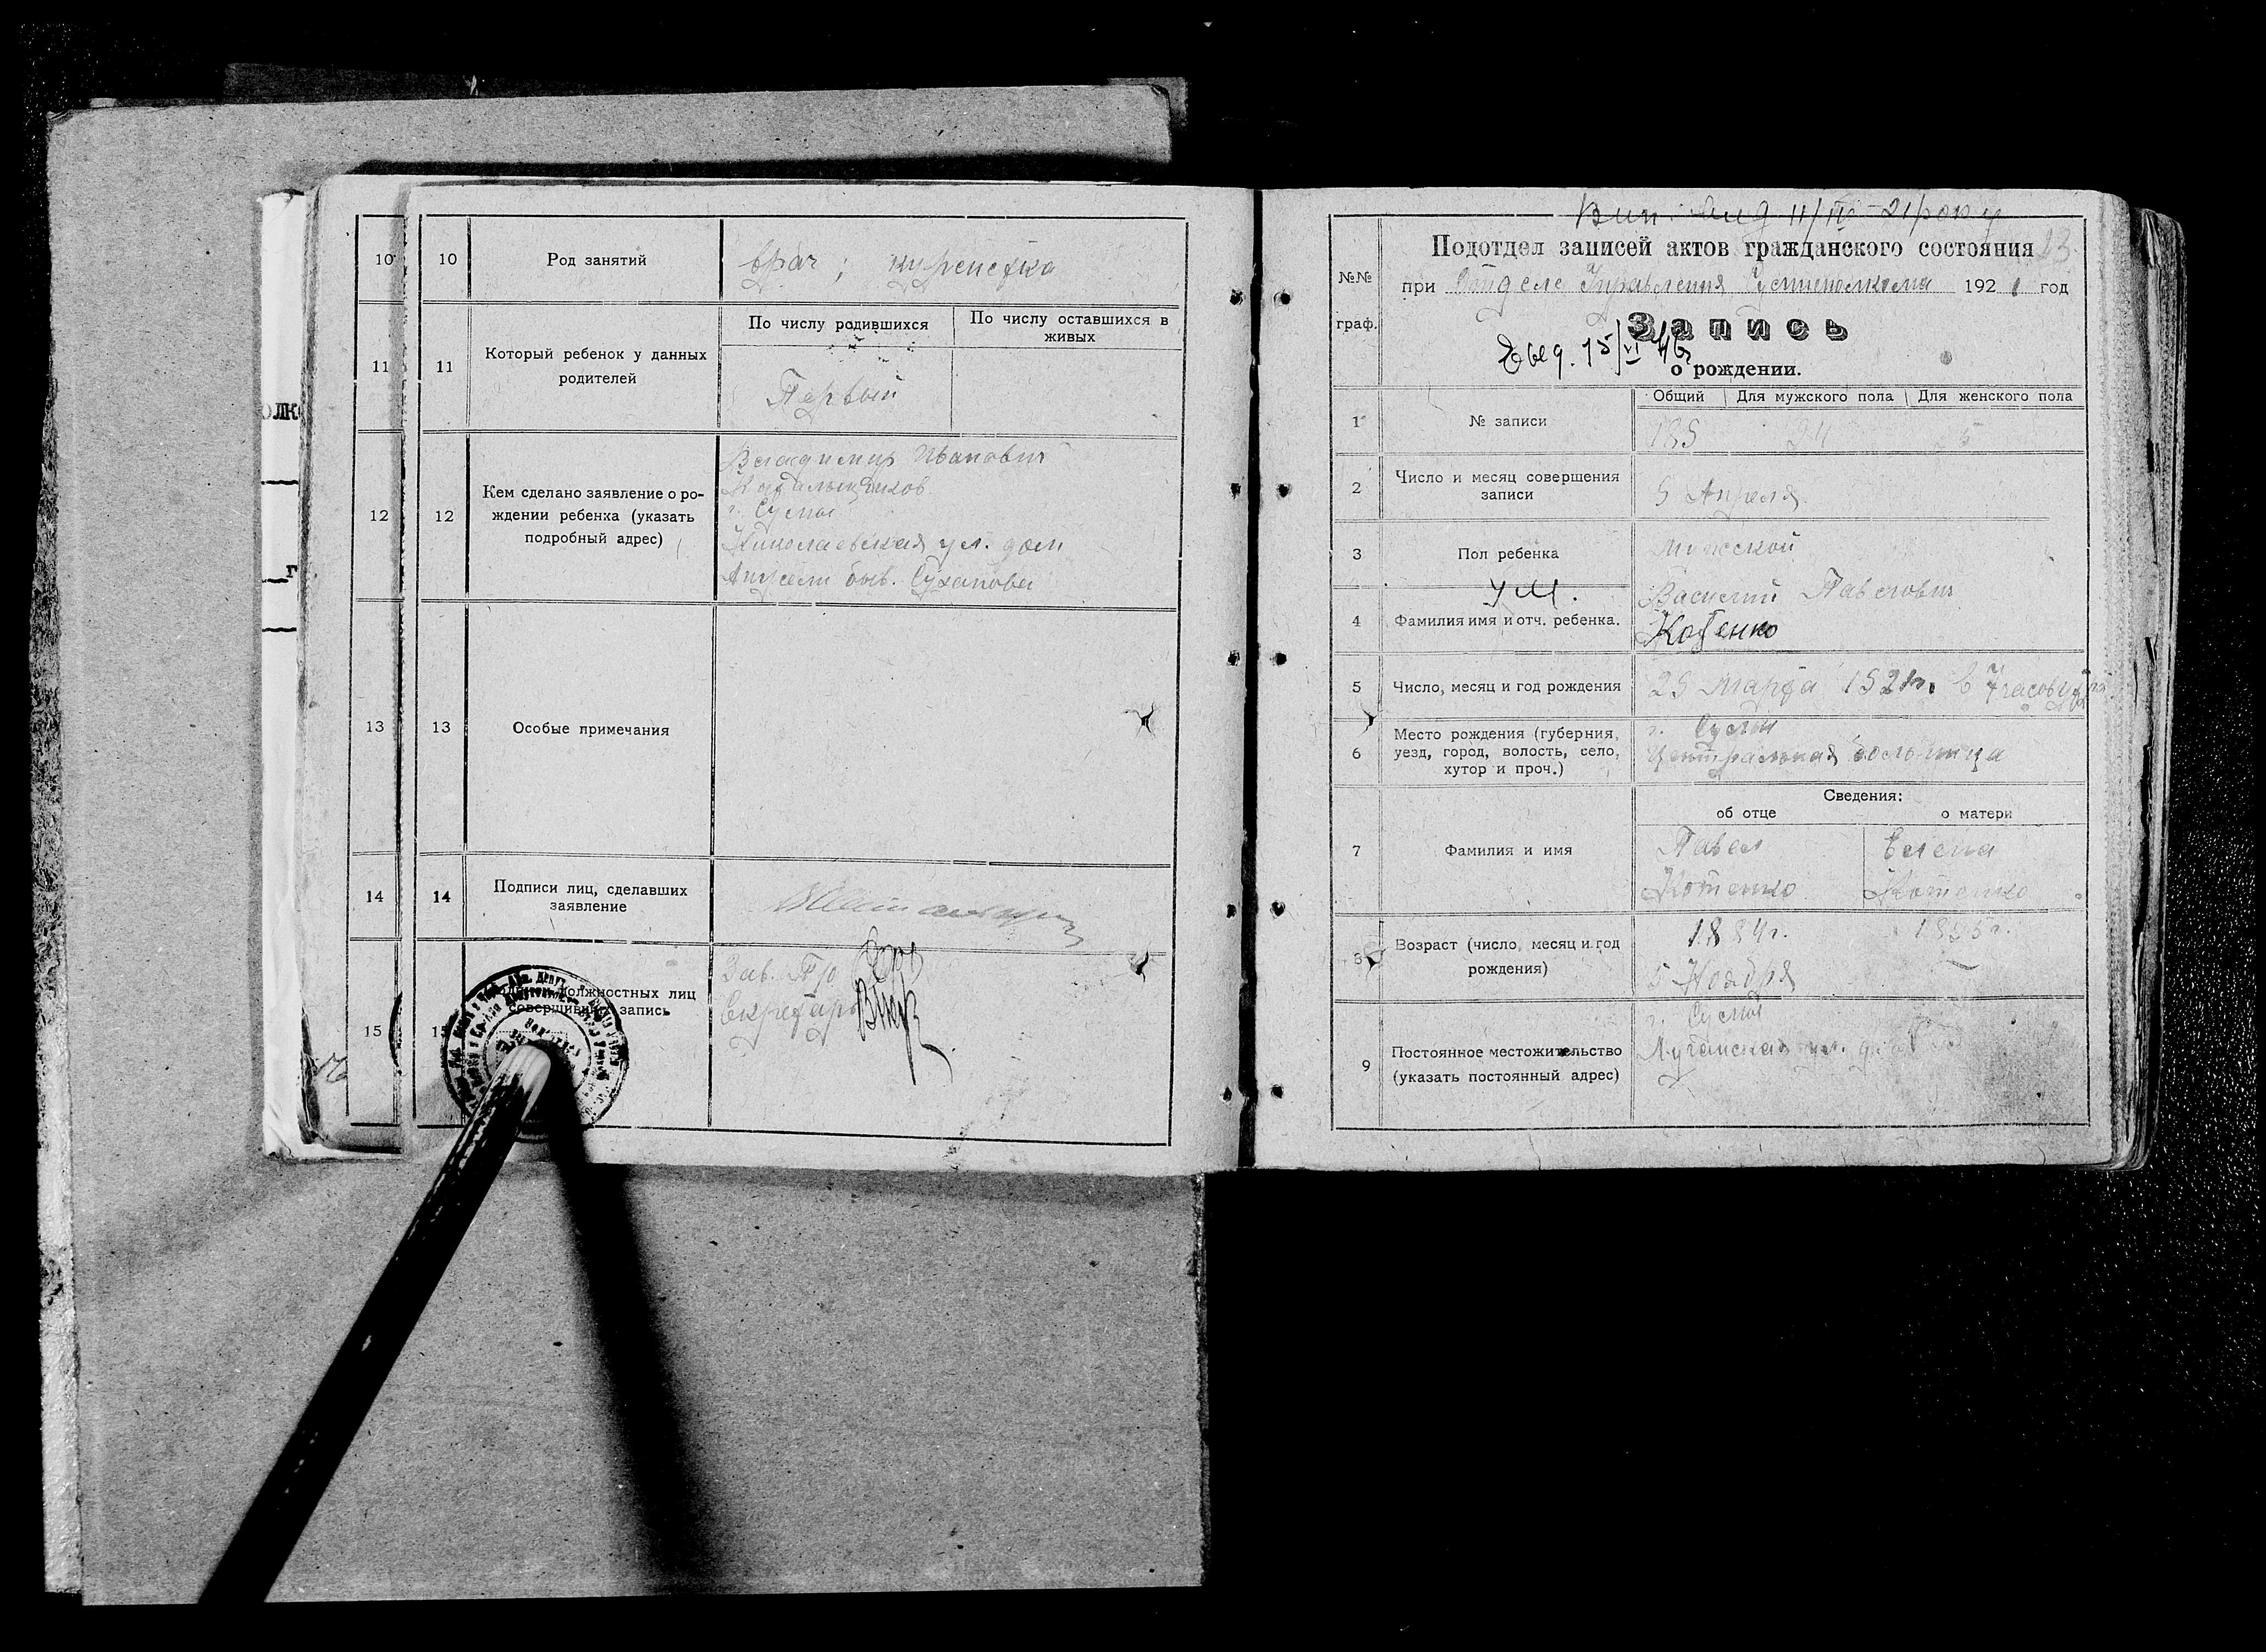 10 10 Род занятий врач; курсистка
11 11 Который ребенок у данных родителей
По числу родившихся По числу оставшихся в живых
Первый
12 12 Кем сделано заявление о рождении ребенка (указать подробный адрес)
Владимир Иванович
г. Сумы
Николаевская ул. дом
Артели быв. Суханова
13 13 Особые примечания
14 14 Подписи лиц, сделавших заявление
15 должностных лиц
совершивших запись
Зав.
Секретарь
11/IV 21 року
Подотдел записей актов гражданского состояния 23
№№ граф.
при Отделе Управления 1921 год
Запись
15/VI 46
о рождении.
Общий Для мужского пола Для женского пола
1 № записи 185 94
2 Число и месяц совершения записи
5 Апреля
3 Пол ребенка Мужской
4 Фамилия имя и отч. ребенка.
Василий Павлович
Котенко
5 Число, месяц и год рождения 29 Марта 1921г. в 7 часов утра
6 Место рождения (губерния, уезд, город, волость, село, хутор и проч.)
г. Сумы
Центральная больница
Сведения:
об отце о матери
7 Фамилия и имя
Павел Елена
Котенко Котенко
8 Возраст (число, месяц и год рождения)
1884г.
5 Ноября —
9 Постоянное местожительство (указать постоянный адрес)
г. Сумы
ул. д.